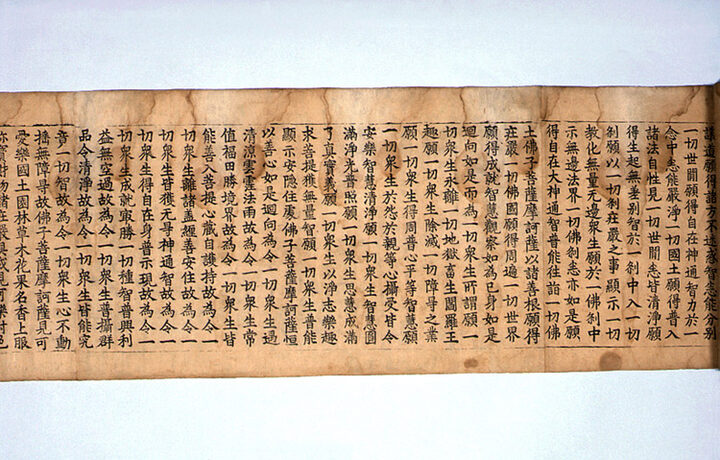 議道願得諸方不迷惑智悉能分別
一切世間願得自在神通智力於一
念中悉能嚴淨一切國土願得普入
諸法自性見一切世間悉皆清淨願
得生起無差別智於一刹中入一切
刹願以一切刹莊嚴之事顯示一切
教化無量無邊衆生願於一佛刹中
示無邊法界一切佛刹悉亦如是願
得自在大神通智普能往詣一切佛
土佛子菩薩摩訶薩以諸善根願得
莊嚴一切佛國願得周遍一切世界
願得成就智慧觀察如為己身如是
迴向如是而為一切衆生所謂願一
切衆生永離一切地獄畜生閻羅王
趣願一切衆生除滅一切障㝵之業
願一切衆生得周普心平等智慧願
一切衆生於怨於親等心攝受皆令
安樂智慧清淨願一切衆生智慧圓
滿淨光普照願一切衆生思慧成滿
了真實義願一切衆生以淨志樂趣
求菩提獲無量智願一切衆生普能
顯示安隱住處佛子菩薩摩訶薩恒
以善心如是迴向為令一切衆生遇
清涼雲霔法雨故為令一切衆生常
值福田勝境界故為令一切衆生皆
能善入菩提心藏自護持故為令一
切衆生離諸蓋纏善安住故為令一
切衆生皆獲无㝵神通智故為令一
切衆生得自在身普示現故為令一
切衆生成就最勝一切種智普興利
益無空過故為令一切衆生普攝群
品令清淨故為令一切衆生皆能究
竟一切智故為令一切衆生心不動
搖無障㝵故佛子菩薩摩訶薩見可
愛樂國土園林草木花果名香上服
珍寶財物諸莊嚴具或見可樂村邑